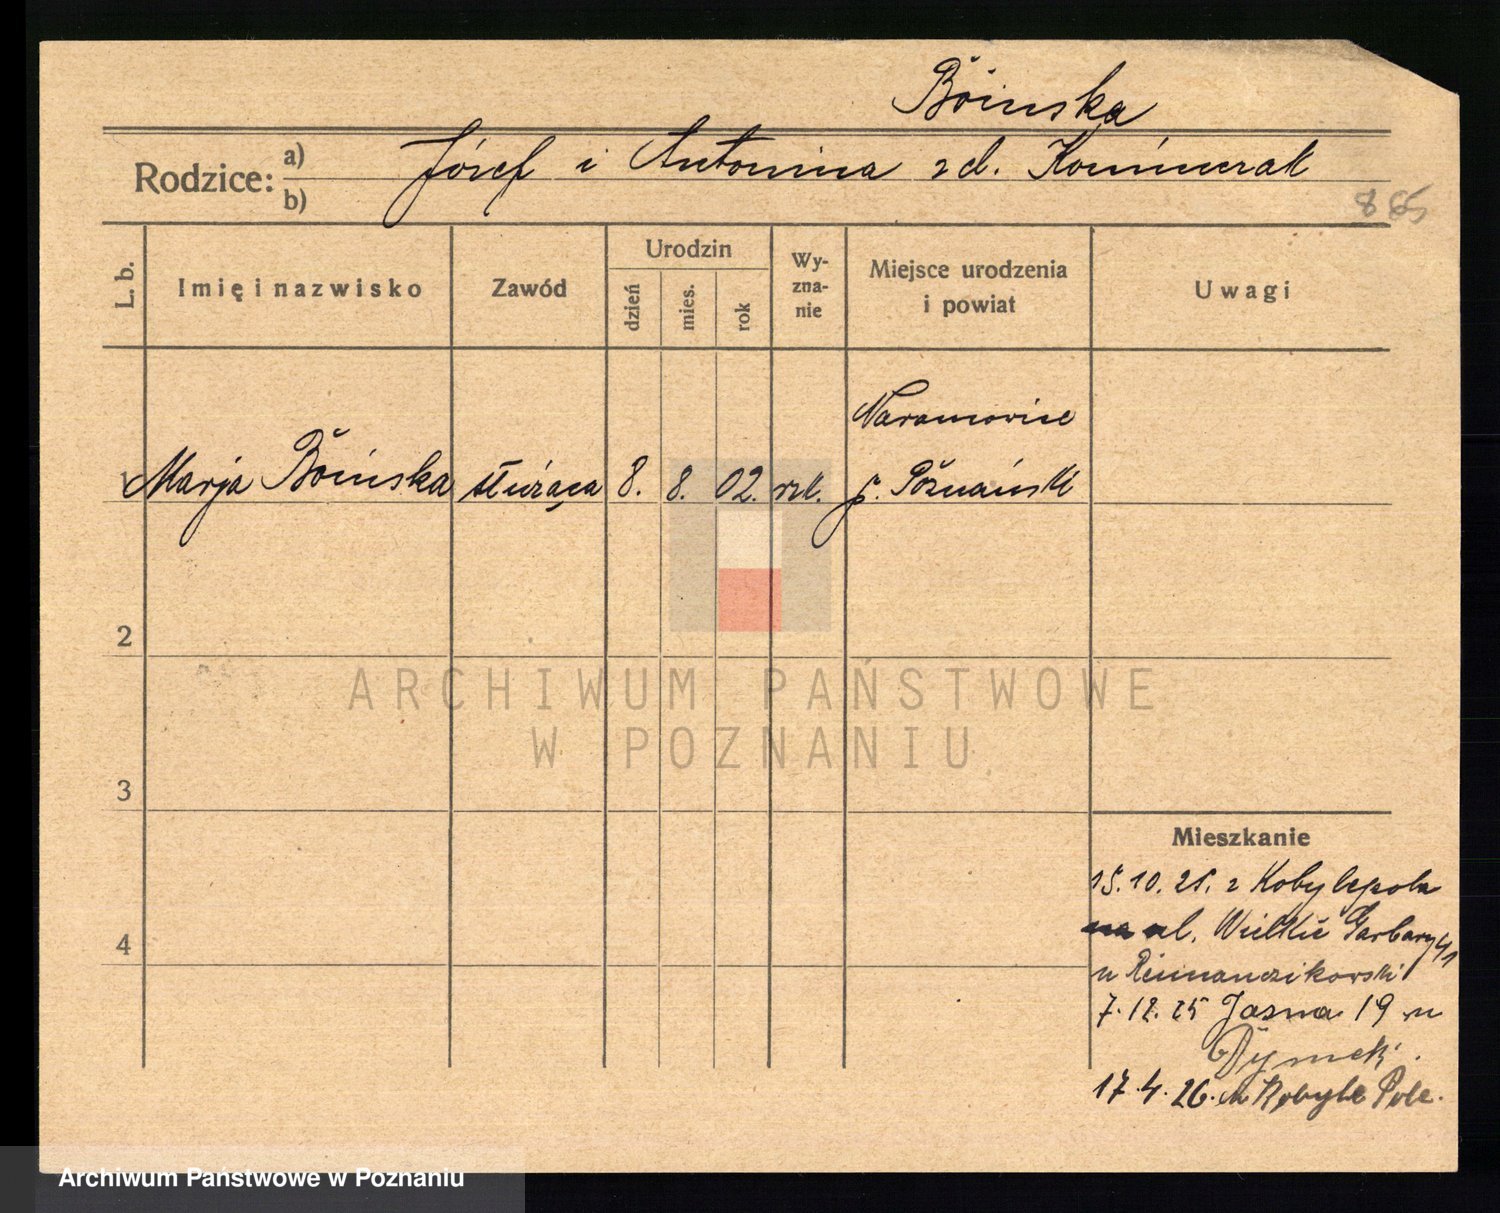 Bōinska
Rodzice: a) b) Józef i Antonina z d. Koniuszak
885
L. b. Imię i nazwisko Zawód Urodzin dzień mies. rok Wyzna-nie Miejsce urodzenia i powiat Uwagi
Naramowice
1 Marja Bōińska służąca 8. 8. 02. rzk. p. Poznański
2
3
4
Mieszkanie
15. 10. 25. z Kobylepola
na ul. Wielkie Garbary 41
u
7. 12. 25 Jasna 19 u
Dymek.
17. 4. 26. Kobyle Pole.
ARCHIWUM PAŃSTWOWE
W POZNANIU
Archiwum Państwowe w Poznaniu